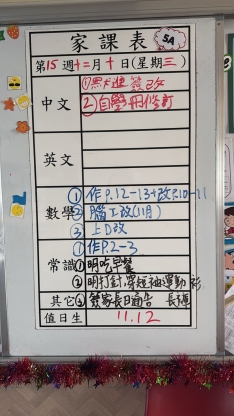 家課表
5A
第15週十二月十日(星期三)
中文
① 默進簽改
② 自學冊修訂
英文
數學
① 作P.12-13+改P.10-11
② 腦工改(11月)
③ 上D改
常識
① 作P.2-3
① 明吃早餐
② 明打針,穿短袖運動衫
其它
③ 簽家長日通告 長裙
值日生
11.12